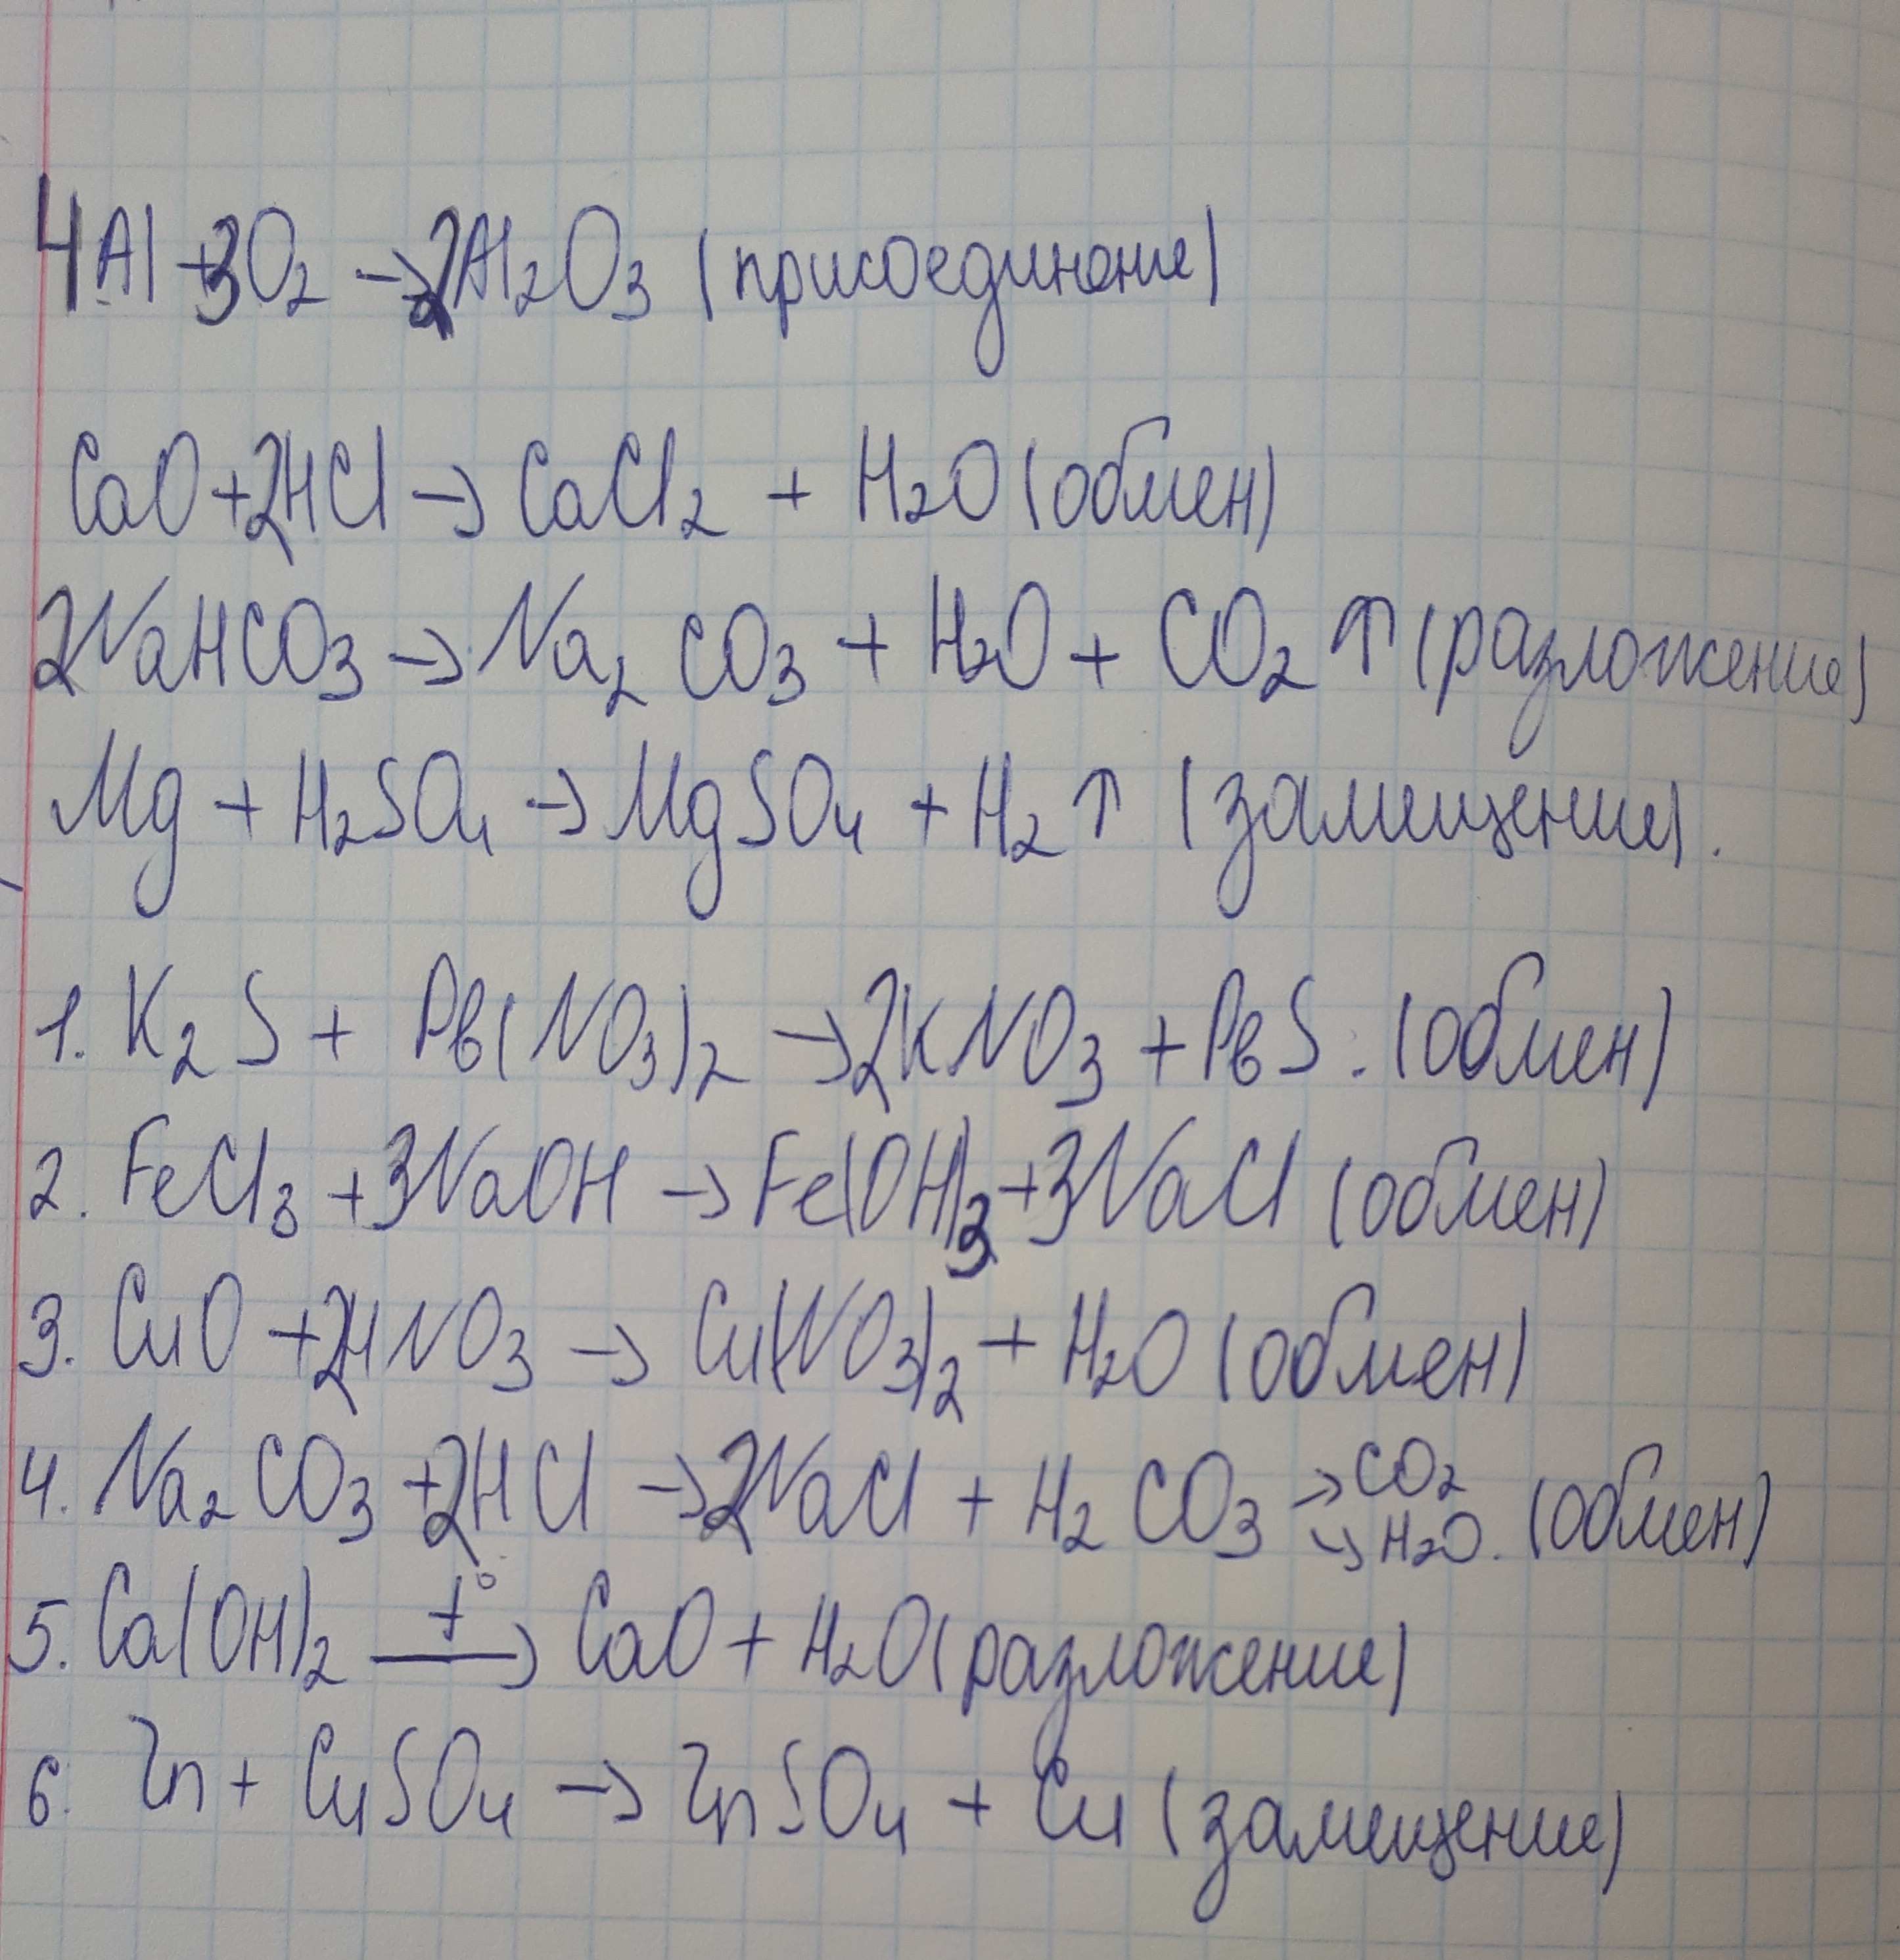 4Al + 3O₂ → 2Al₂O₃ (присоединение)
CaO + 2HCl → CaCl₂ + H₂O (обмен)
2NaHCO₃ → Na₂CO₃ + H₂O + CO₂ ↑ (разложение)
Mg + H₂SO₄ → MgSO₄ + H₂ ↑ (замещение).
1. K₂S + Pb(NO₃)₂ → 2KNO₃ + PbS. (обмен)
2. FeCl₃ + 3NaOH → Fe(OH)₃ + 3NaCl (обмен)
3. CuO + 2HNO₃ → Cu(NO₃)₂ + H₂O (обмен)
4. Na₂CO₃ + 2HCl → 2NaCl + H₂CO₃ → CO₂ → H₂O. (обмен)
5. Ca(OH)₂ t° → CaO + H₂O (разложение)
6. Zn + CuSO₄ → ZnSO₄ + Cu (замещение)